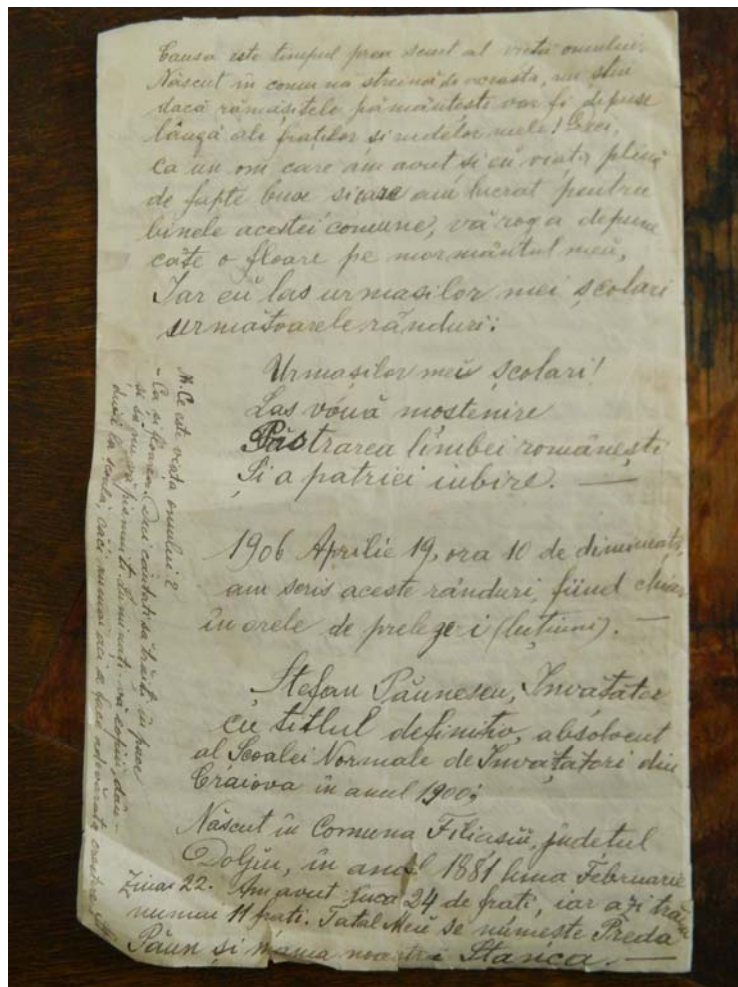 Causa este timpul prea scurt al vietii omului.
Născut în comună streină de aceasta, nu știu
dacă rămășitele pământesti vor fi depuse
lângă ale fraților si rudelor mele! Deci,
ca un om care am avut si eu viața plină
de fapte bune si care am lucrat pentru
binele acestei comune, vă rog a depune
câte o floare pe mormântul meŭ,
Iar eŭ las urmasilor mei școlari
următoarele rânduri:
Urmașilor meĭ școlari!
Las vóuă mostenire
Păstrarea limbei românești
Și a patriei iubire. —
1906 Aprilie 19, ora 10 de dimineață,
am scris aceste rânduri, fiind chiar
în orele de prelegeri (lecțiuni). —
Stefan Păunescu, Învățător
cu titlul definitiv, absolvent
al Școalei Normale de Învațatori din
Craiova în anul 1900;
Născut în Comuna Filiasiŭ, județul
Doljiu, în anul 1881 luna Februarie
Ziua 22. Am avut 24 de frati, iar azi
numai 11 frati. Tatal Meŭ se numește Preda
Păun și mama noastră Stanca. —
N. Ce este viața omului?
- Ca și floarea. Deci căutati să trăiti în pace
si să nu vă Luminati-vă copiii, dân-
duĭ la școală, căci numai aci se face adevărata crestere.